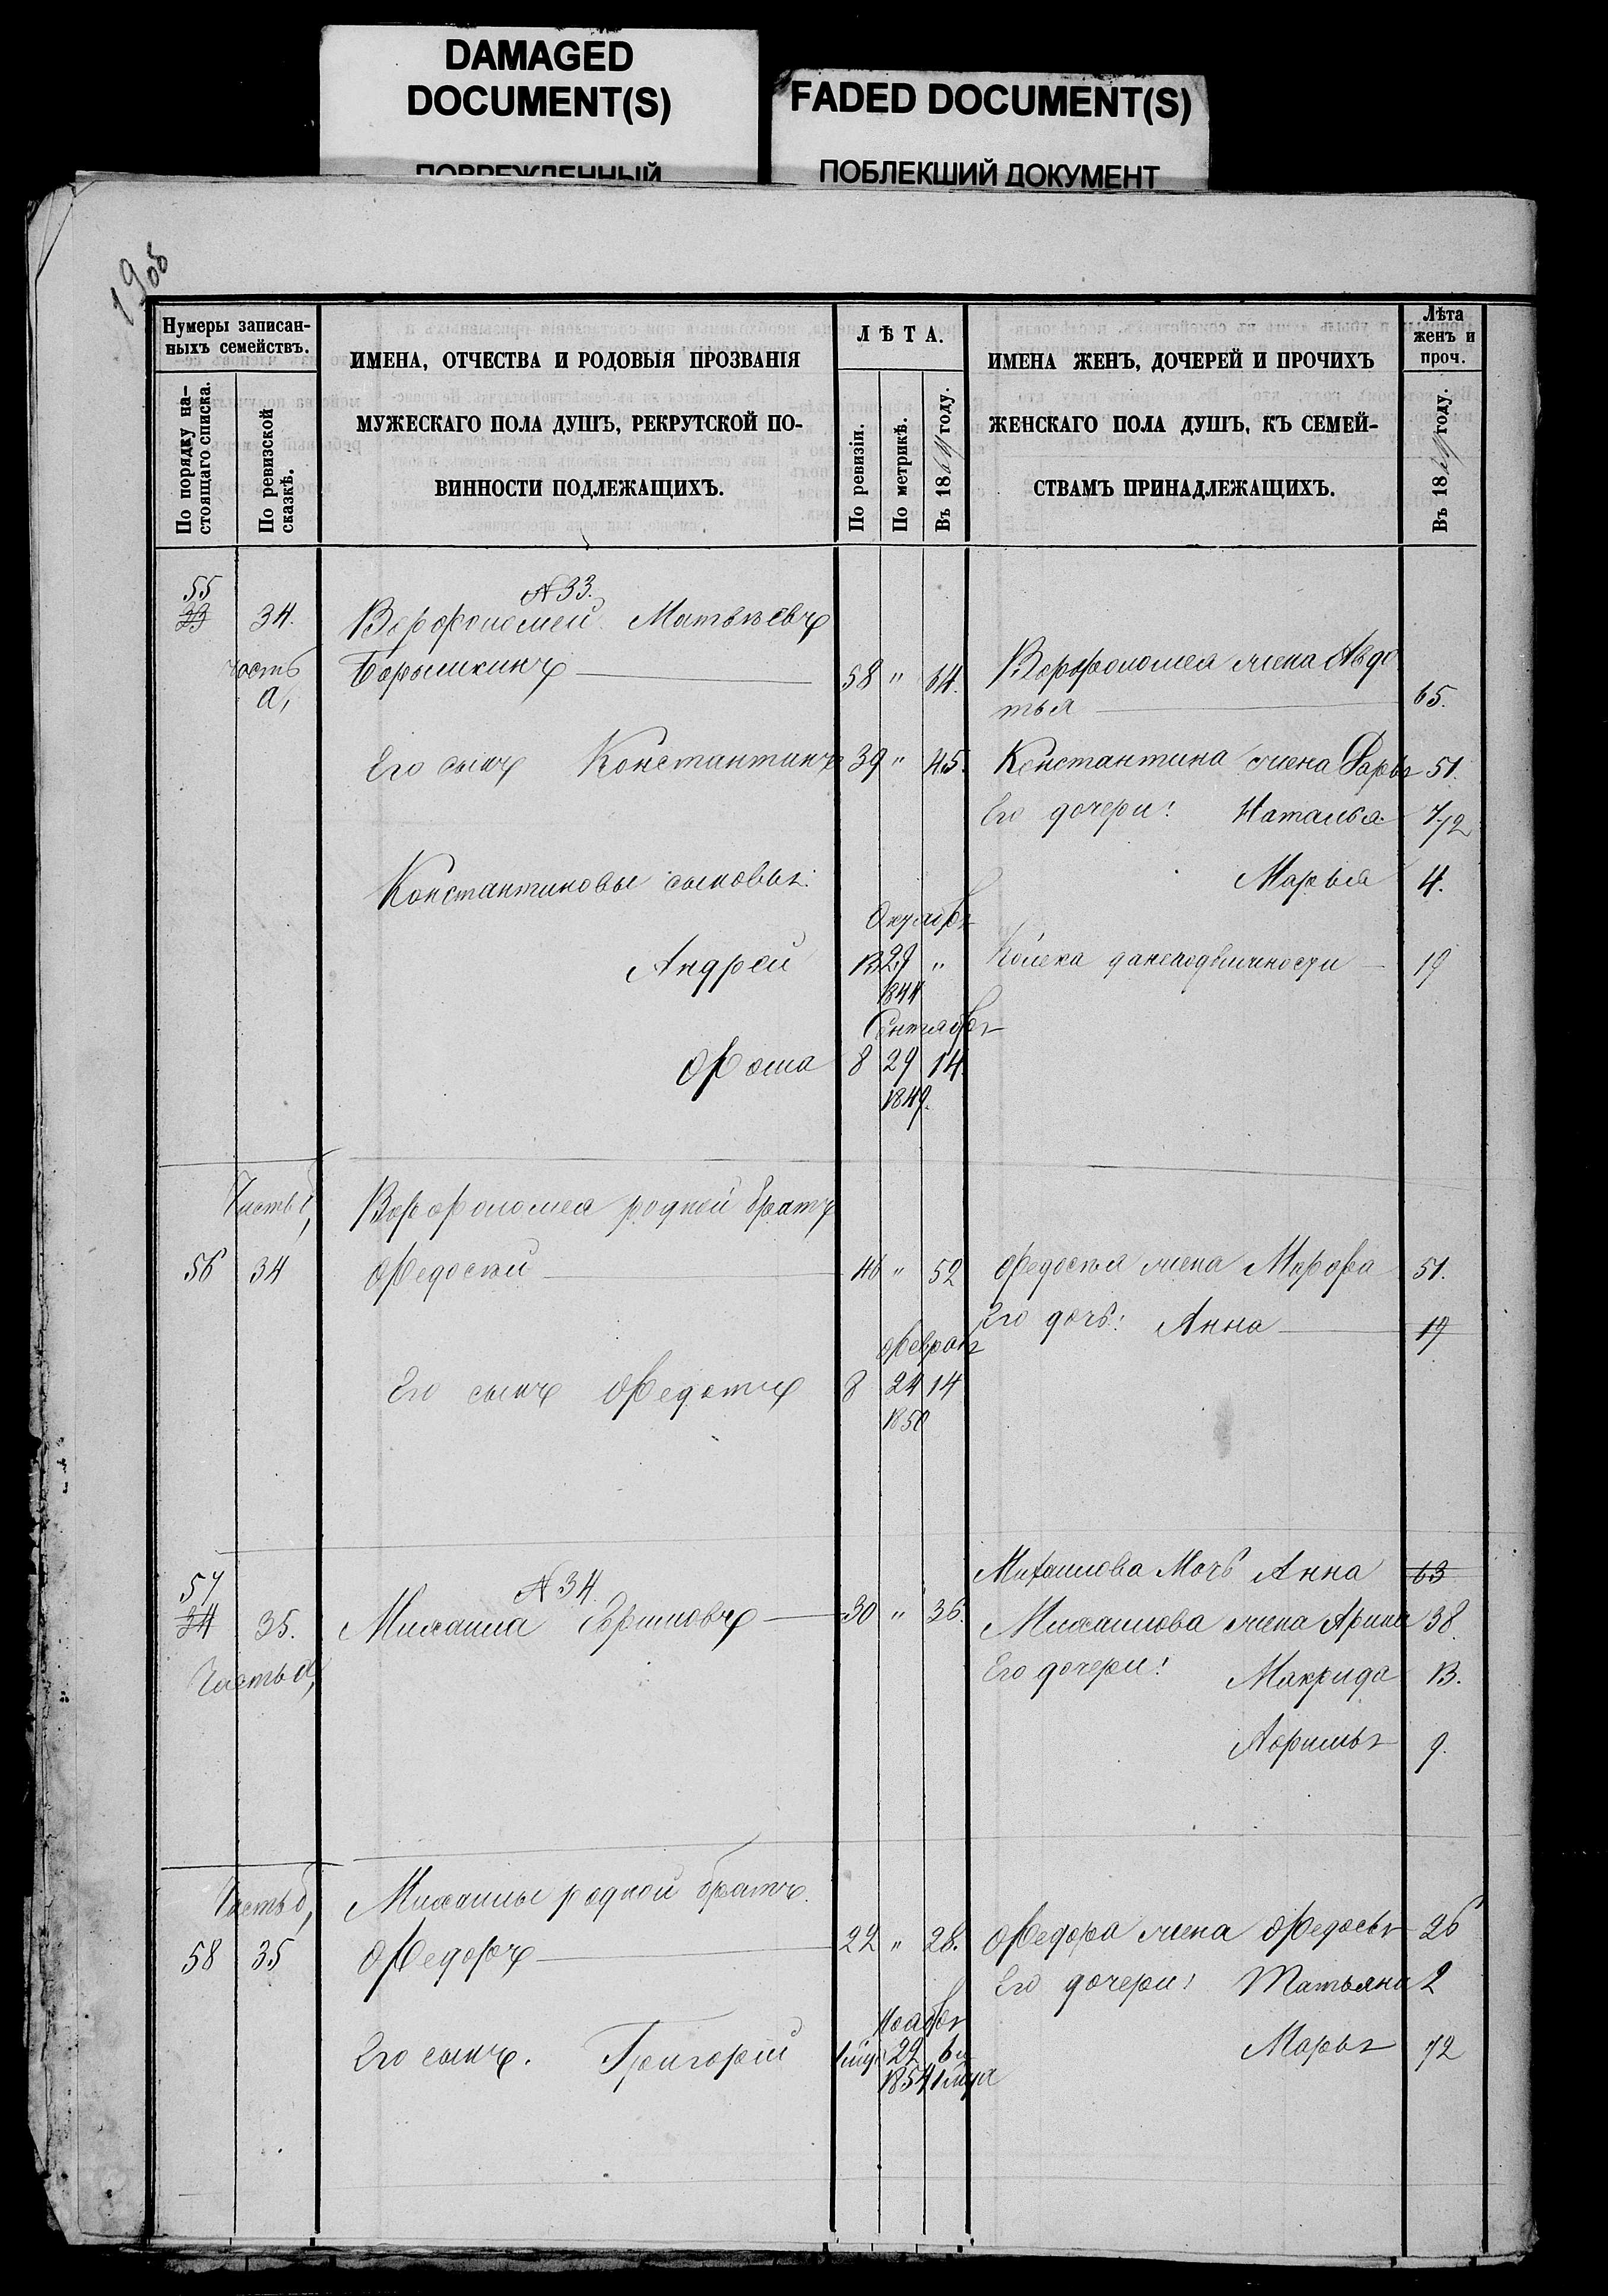 DAMAGED
DOCUMENT(S)
ПОВРЕЖДЕННЫЙ
FADED DOCUMENT(S)
ПОБЛЕКШИЙ ДОКУМЕНТ
Нумеры записан-
ныхъ семействъ.
По порядку на-
стоящаго списка.
По ревизской
сказкѣ.
ИМЕНА, ОТЧЕСТВА И РОДОВЫЯ ПРОЗВАНІЯ
МУЖЕСКАГО ПОЛА ДУШЪ, РЕКРУТСКОЙ ПО-
ВИННОСТИ ПОДЛЕЖАЩИХЪ.
ЛѢТА.
По ревизіи.
По метрикѣ.
Въ 1861/4 году.
ИМЕНА ЖЕНЪ, ДОЧЕРЕЙ И ПРОЧИХЪ
ЖЕНСКАГО ПОЛА ДУШЪ, КЪ СЕМЕЙ-
СТВАМЪ ПРИНАДЛЕЖАЩИХЪ.
Лѣта
женъ и
проч.
Въ 186 году.
55
33 34.
N 33.
Ворфоломей Матвѣевъ
часть
а,
58 " 64.
Ворфоломея жена Авдо
тья 65.
Его сынъ Константинъ 39 " 45.
Константина жена Дарья 51.
Его дочери: Наталья 7/12
Марья 4.
Константиновы сыновья:
Октября
Андрей 13 29 "
1844
19
Сентября
Фома 8 29 14
1849.
Часть б,
Ворфоломея родной братъ
56 34 Федосѣй 46 " 52
Федосѣя жена Марфа 51.
Его дочь: Анна 19
Февраля
Его сынъ Федотъ 8 24 14
1850
57
34 35.
Часть а,
N 34.
Михаила 30 " 36.
Михаилова Мать Анна 63
Михаилова жена Арина 38.
Его дочери: Макрида 13.
9.
Часть б,
Михаилы родной братъ.
58 35 Федоръ 22 " 28.
Федора жена Федосья 26
Его дочери: Татьяна 2
Марья 1/2
Ноября
Его сынъ. Григорій 22